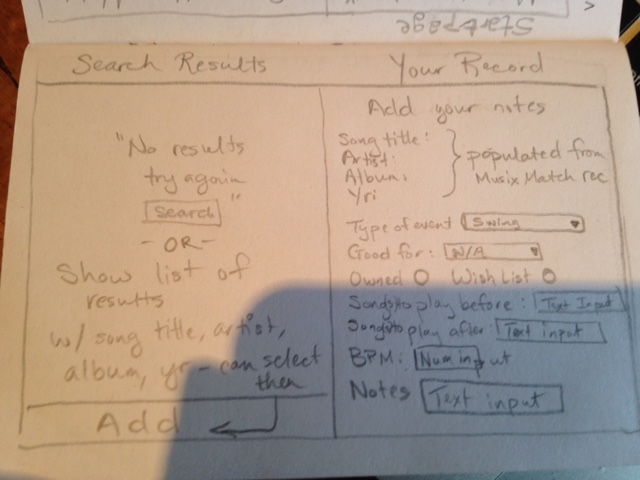 Start Page
Search Results
"No results
try again
Search"
- OR -
Show list of
results
w/ song title, artist,
album, yr - can select
then
Add
Your Record
Add your notes
Song title:
Artist:
Album:
Yr:
populated from
Musix Match rec
Type of event Swing
Good for: N/A
Owned Wish List
Songs to play before: Text Input
Songs to play after: Text input
BPM: Num input
Notes Text input